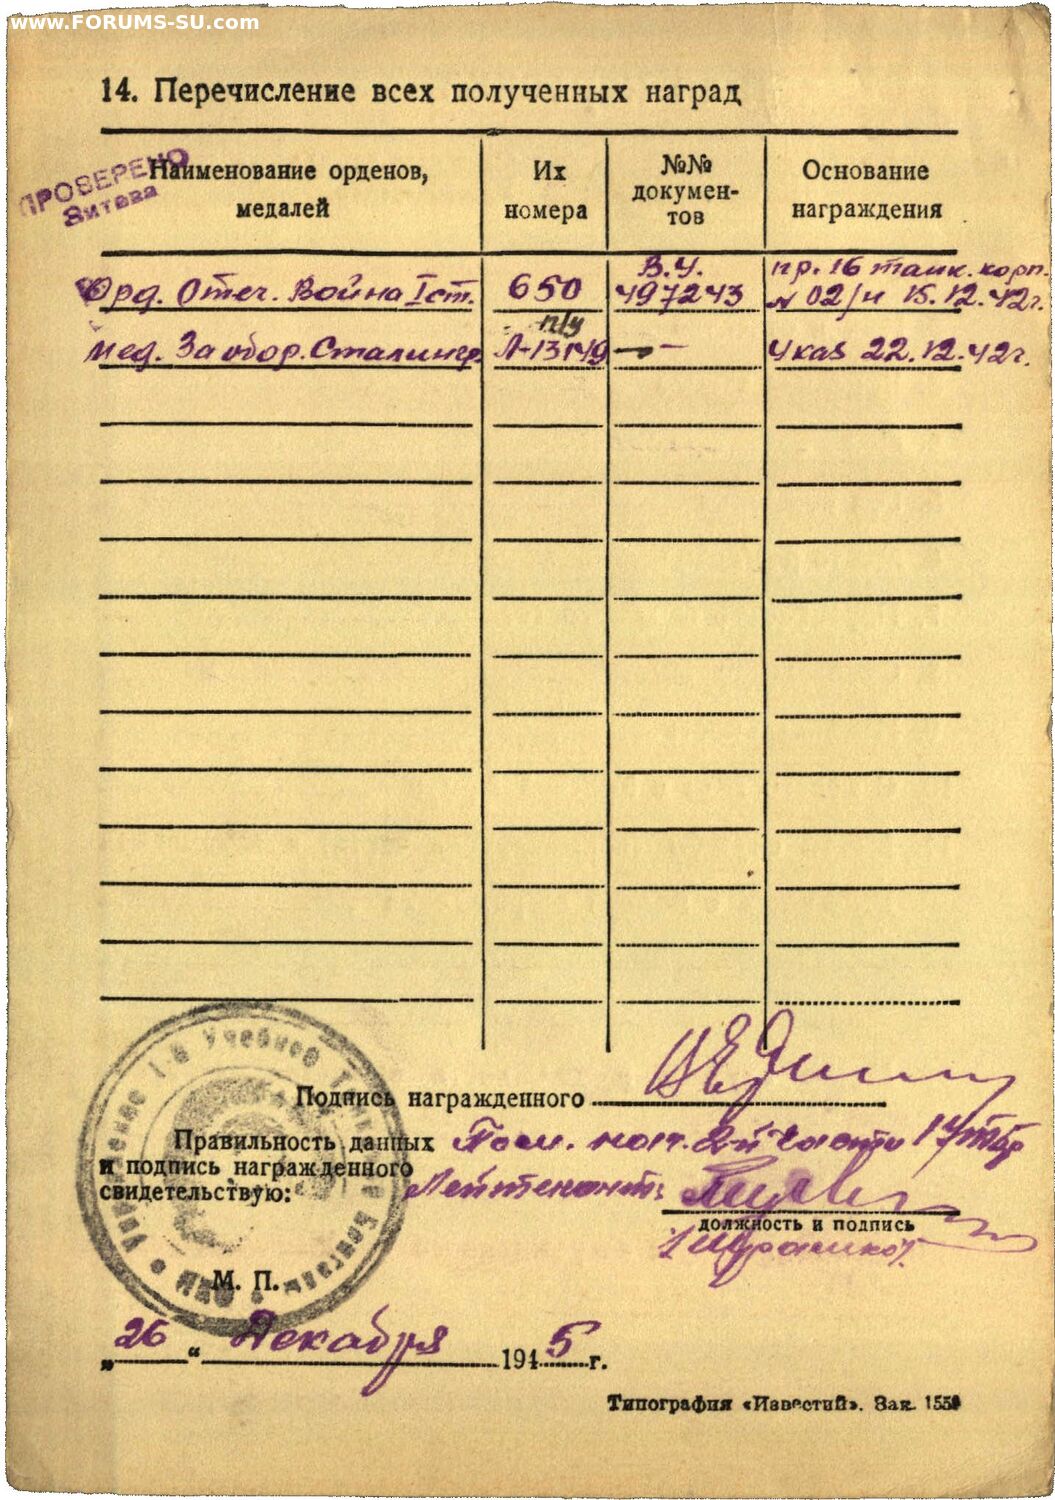 www.FORUMS-SU.com
14. Перечисление всех полученных наград
ПРОВЕРЕНО
Наименование орденов, медалей
Их номера
№№ докумен-
тов
Основание награждения
Орд. Отеч. Война I ст. 650 В.У. 497243 пр. 16 танк. корп. № 02/н 15.12.42г.
п/у
Мед. За обор. Сталингр. Л-13149 — — Указ 22.12.42г.
Подпись награжденного
Правильность данных
и подпись награжденного
свидетельствую:
Пом. нач. 2й части
Лейтенант:
должность и подпись
М. П.
„ 26 “ Декабря 1945 г.
Типография «Известий». Зак. 155